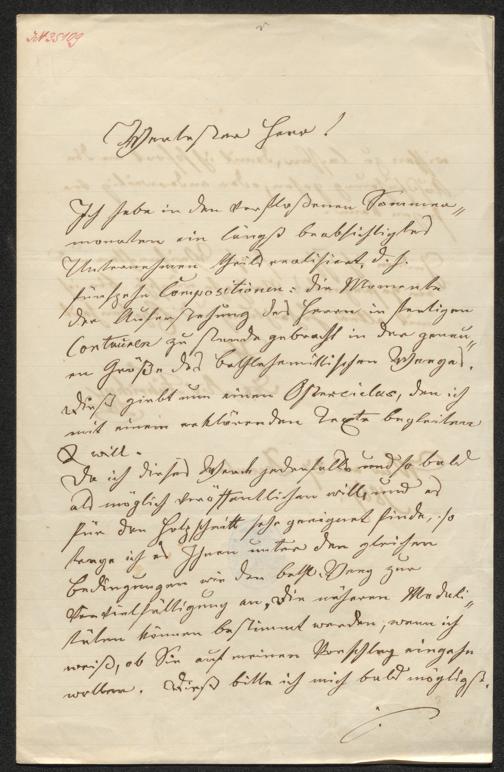 IN 35109
Wertester Herr!
Ich habe in den verfloßenen Sommer„
monaten ein längst beabsichtigtes
Unternehmen theils realisirt, d. h.
fünfzehn Compositionen: die Momente
der Auferstehung des Herrn in fertigen
Contouren zu stande gebracht in der genau„
en Größe des bethlehemitischen Weeges.
Dieß giebt nun einen Ostercielus, den ich
mit einem erklärenden Texte begleiten
will.
Da ich dieses Werk jedenfalls und so bald
als möglich veröffentlichen will, und es
für den Holzschnitt sehr geeignet finde, so
trage ich es Ihnen unter den gleichen
Bedingungen wie den bethl. Weeg zur
Vervielfältigung an. Die näheren Modali„
täten können bestimmt werden, wenn ich
weiß, ob Sie auf meinen Vorschlag eingehn
wollen. Dieß bitte ich mich bald möglichst.